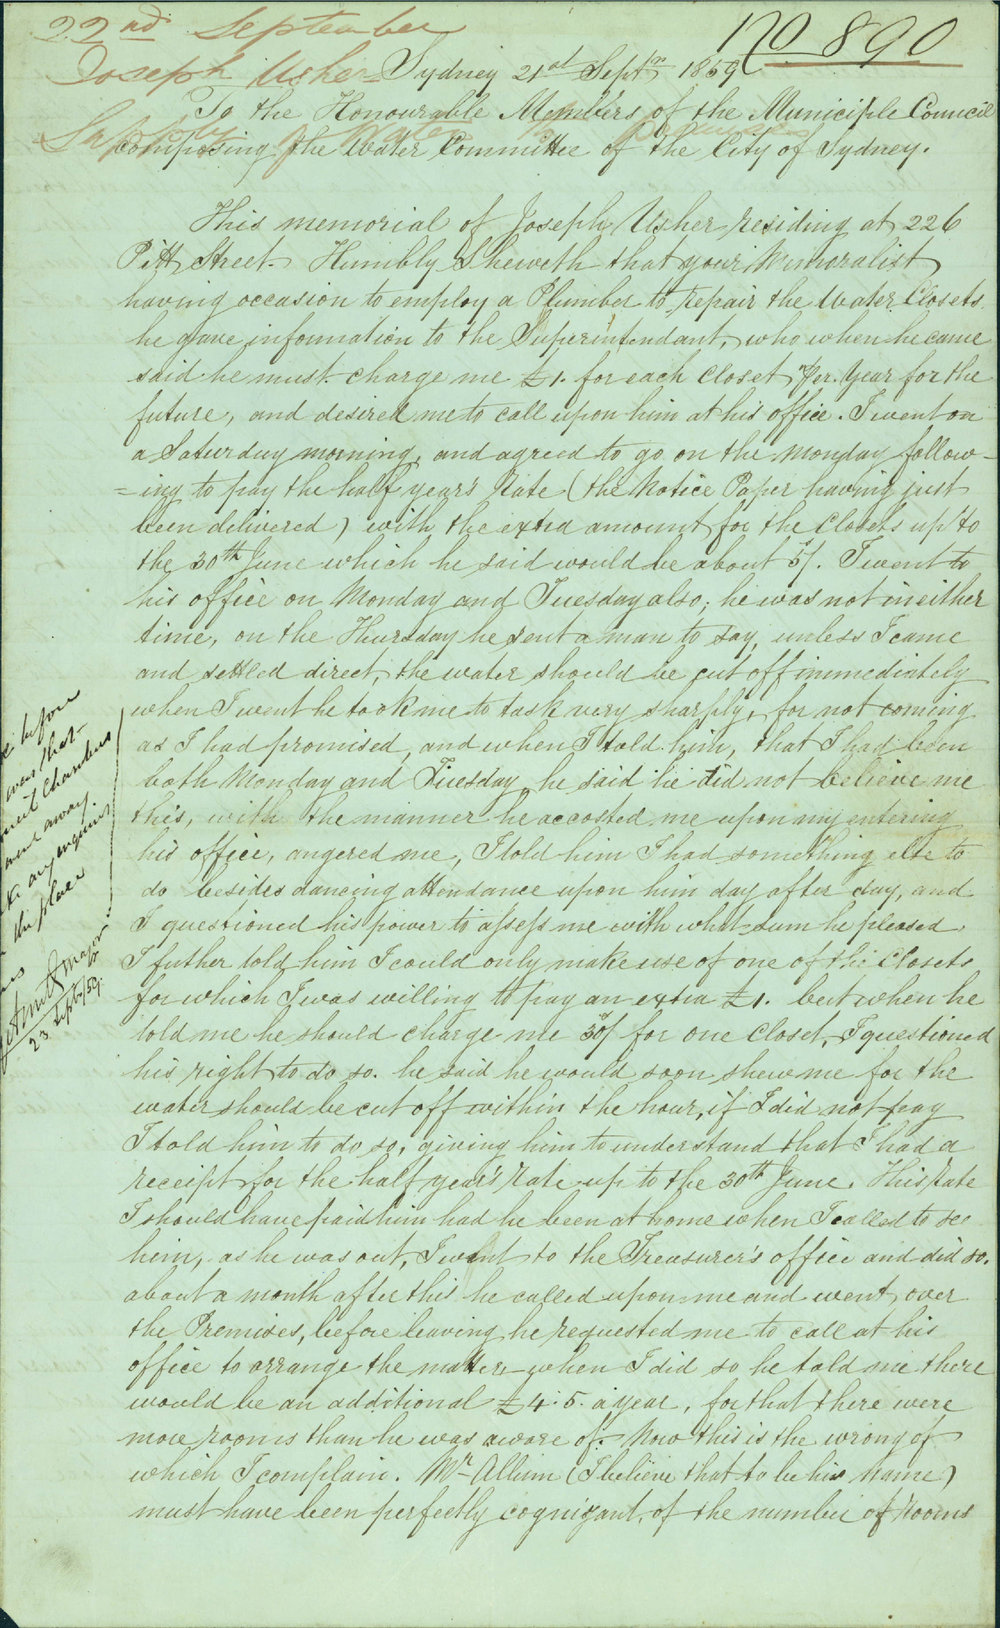 22nd September
No 890
Joseph Usher
Sydney 21st Septr 1859
To the Honourable Members of the Municiple Council
Composing the Water Committee of the City of Sydney.
This memorial of Joseph Usher residing at 226
Pitt Street. Humbly Sheweth that your Memoralist
having occasion to employ a Plumber to repair the Water Closets
he gave information to the Superintendant, who when he came
said he must charge me £1. for each Closet Per. Year for the
future, and desired me to call upon him at his office. I went on
a Saturday morning, and agreed to go on the Monday follow-
=ing to pay the half year's Rate (the Notice Paper having just
been delivered) with the extra amount for the Closets up to
the 30th June which he said would be about 5/. I went to
his office on Monday and Tuesday also, he was not in either
time, on the Thursday he sent a man to say, unless I came
and settled direct, the water should be cut off immediately
when I went he took me to task very sharply, for not coming
as I had promised, and when I told him, that I had been
both Monday and Tuesday, he said he did not believe me
this, with the manner he accosted me upon my entering
his office, angered me, I told him I had something else to
do besides dancing attendance upon him day after day, and
I questioned his power to assess me with what sum he pleased.
I futher told him I could only make use of one of the Closets
for which I was willing to pay an extra £1. but when he
told me he should charge me 30/ for one Closet, I questioned
his right to do so. he said he would soon shew me for the
water should be cut off within the hour, if I did not pay
I told him to do so, giving him to understand that I had a
receipt for the half year's rate up to the 30th June. This rate
I should have paid him had he been at home when I called to see
him, as he was out, I went to the Treasurer's office and did so.
about a month after this he called upon me and went over
the Premises, before leaving he requested me to call at his
office to arrange the matter, when I did so he told me there
would be an additional £4.5. a year, for that there were
more rooms than he was aware of. Now this is the wrong of
which I complain. Mr Allum (I believe that to be his name)
must have been perfectly cognizant, of the number of Rooms
before
Chambers
away.
any enquiries
the place
Mayor
23 Sept/59.